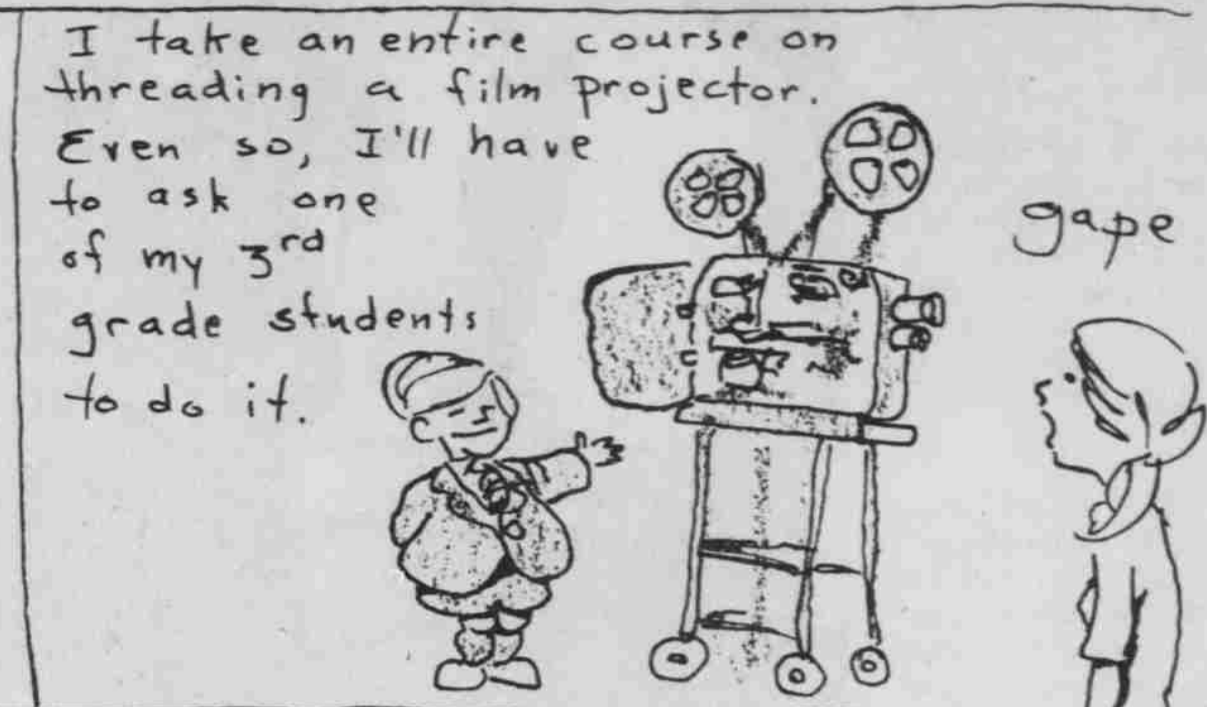 I take an entire course on
threading a film projector.
Even so, I'll have
to ask one
of my 3rd
grade students
to do it.
gape